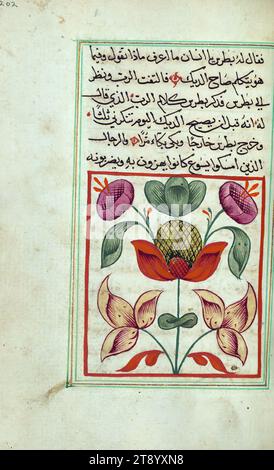 202
فقال له بطرس يا انسان ما اعرف ماذا تقول وفيما
هو يتكلم صاح الديك فالتفت الرب ونظر
الى بطرس فذكر بطرس كلام الرب الذي قال
له انه قبل ان يصيح الديك اليوم تنكرني ثلثا
وخرج بطرس خارجا وبكى بكا مرا والرجال
الذين امسكوا يسوع كانوا يهزون به ويضربونه
alamy
Image ID: 2T8YXN8
www.alamy.com